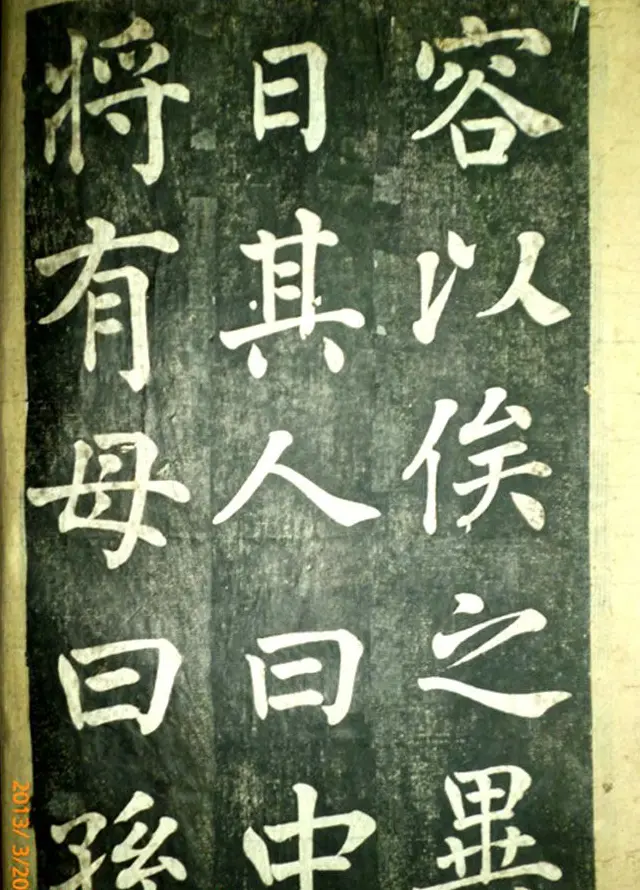 容以俟之畢
目其人曰中
將有母曰孫
2013/ 3/20